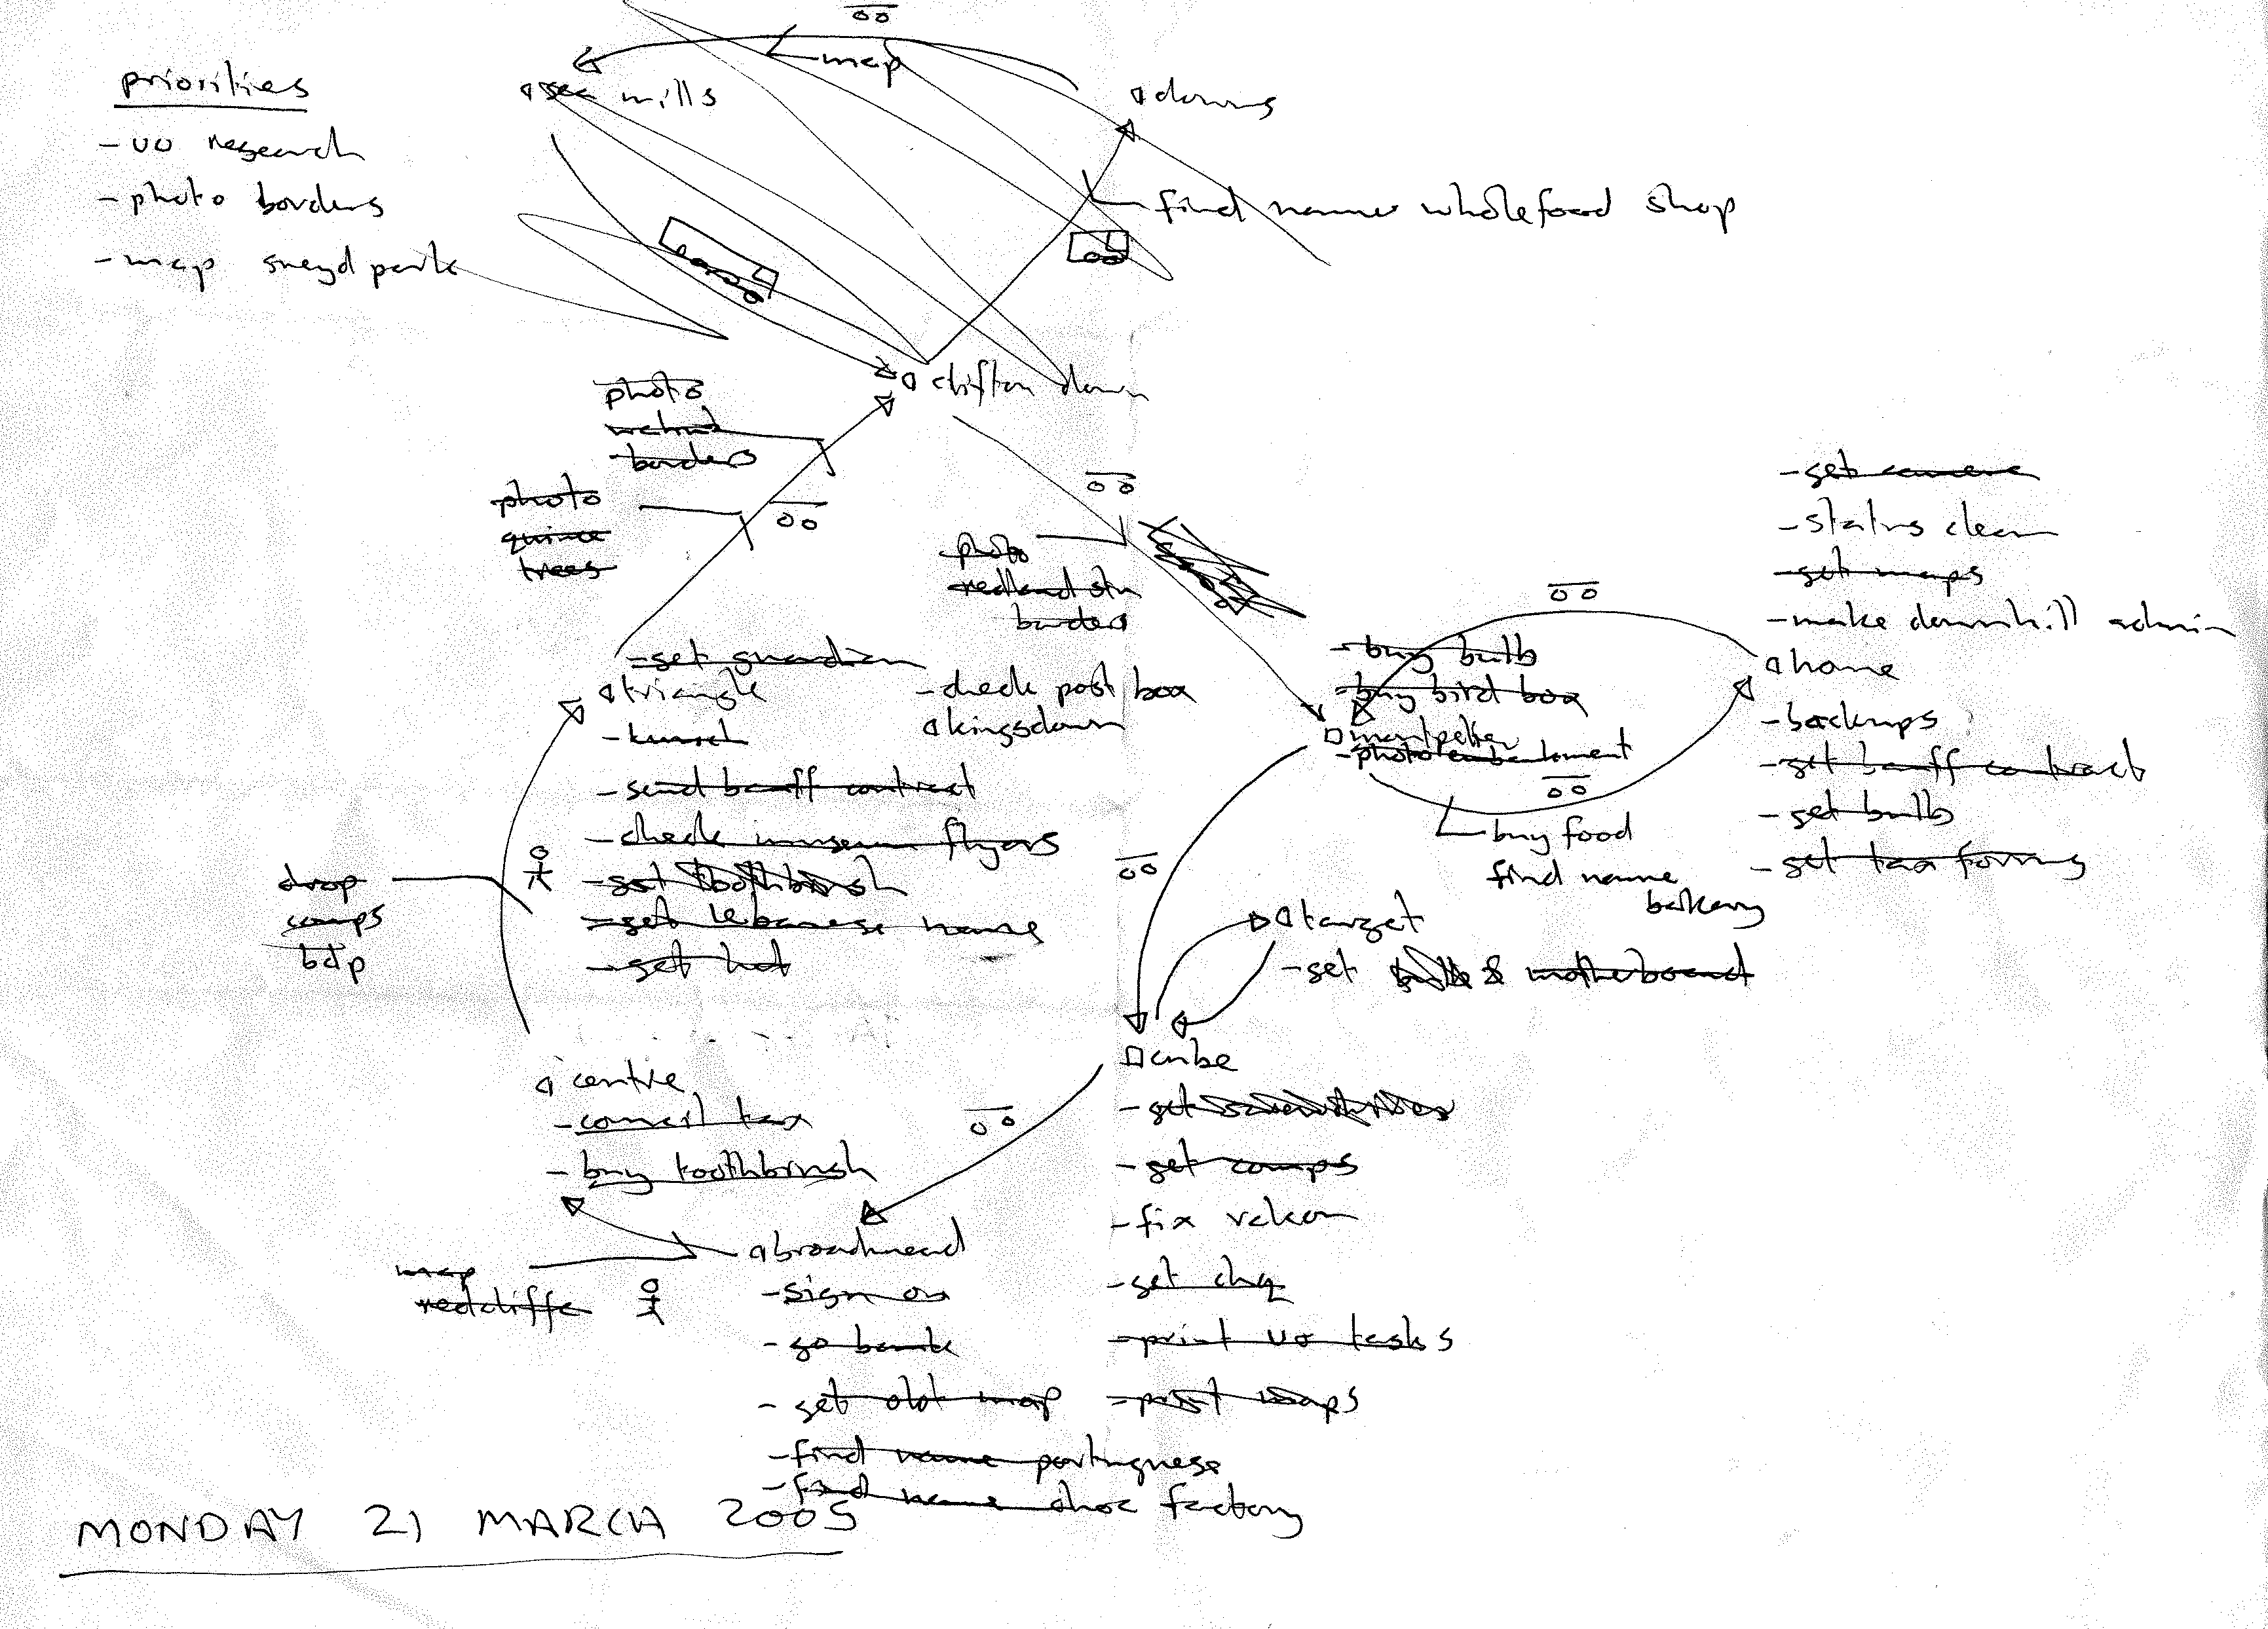 priorities
- uo research
- photo borders
- map sneyd park
sea mills
map
downs
find name wholefood shop
clifton down
photo
borders
photo
quince
trees
photo
redland stn
borders
- get guardian
triangle
- lunch
- send banff contract
- check museum flyers
- get toothbrush
- get lebanese name
- get hat
- check post box
kingsdown
drop
comps
bdp
- buy bulb
- buy bird box
montpelier
- photo embankment
buy food
find name
bakery
- get camera
- status clean
- get maps
- make downhill admin
home
- backups
- get banff contract
- get bulb
- get tax forms
target
- get bulb & motherboard
cube
- get
- get comps
- fix
- get chq
- print uo tasks
- print maps
centre
- council tax
- buy toothbrush
map
redcliffe
broadmead
- sign on
- go bank
- get old map
- find name portuguese
- find name choc factory
MONDAY 21 MARCH 2005